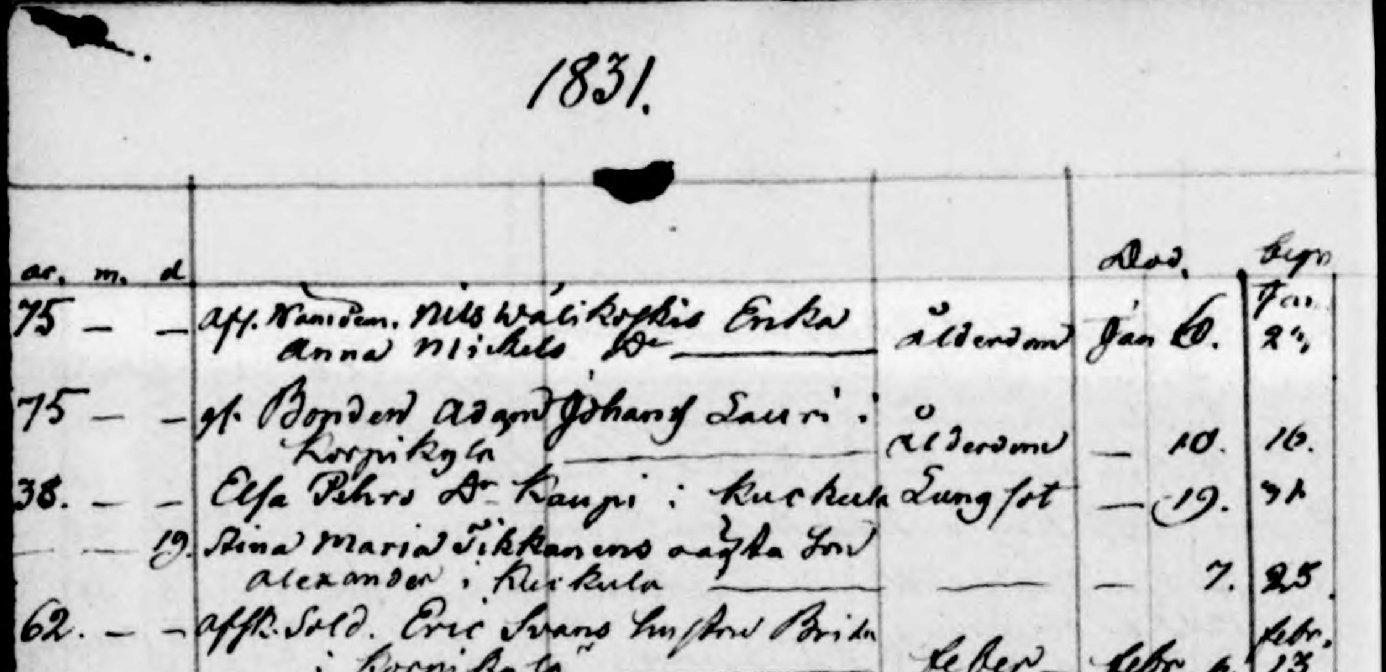 1831.
Död. begr
år. m. d
Jan
75 — — afl. Nämdem. Nils Wälikoskis Enka
Anna Michels Dr ålderdom Jan 6. 2
75 — — gl. Bonden Adam Johanss Lauri i
Korpikylä ålderdom — 10. 16.
38. — — Elsa Pehrs Dr Kaupi i Kuckula Lungsot — 19.
— — 19. Stina Maria Tikkanens oägta Son
Alexander i Kuckula — — 7. 25.
62. — — afsk. Sold. Eric Svans hustru Brita febr.
i Korpikylä feber febr.